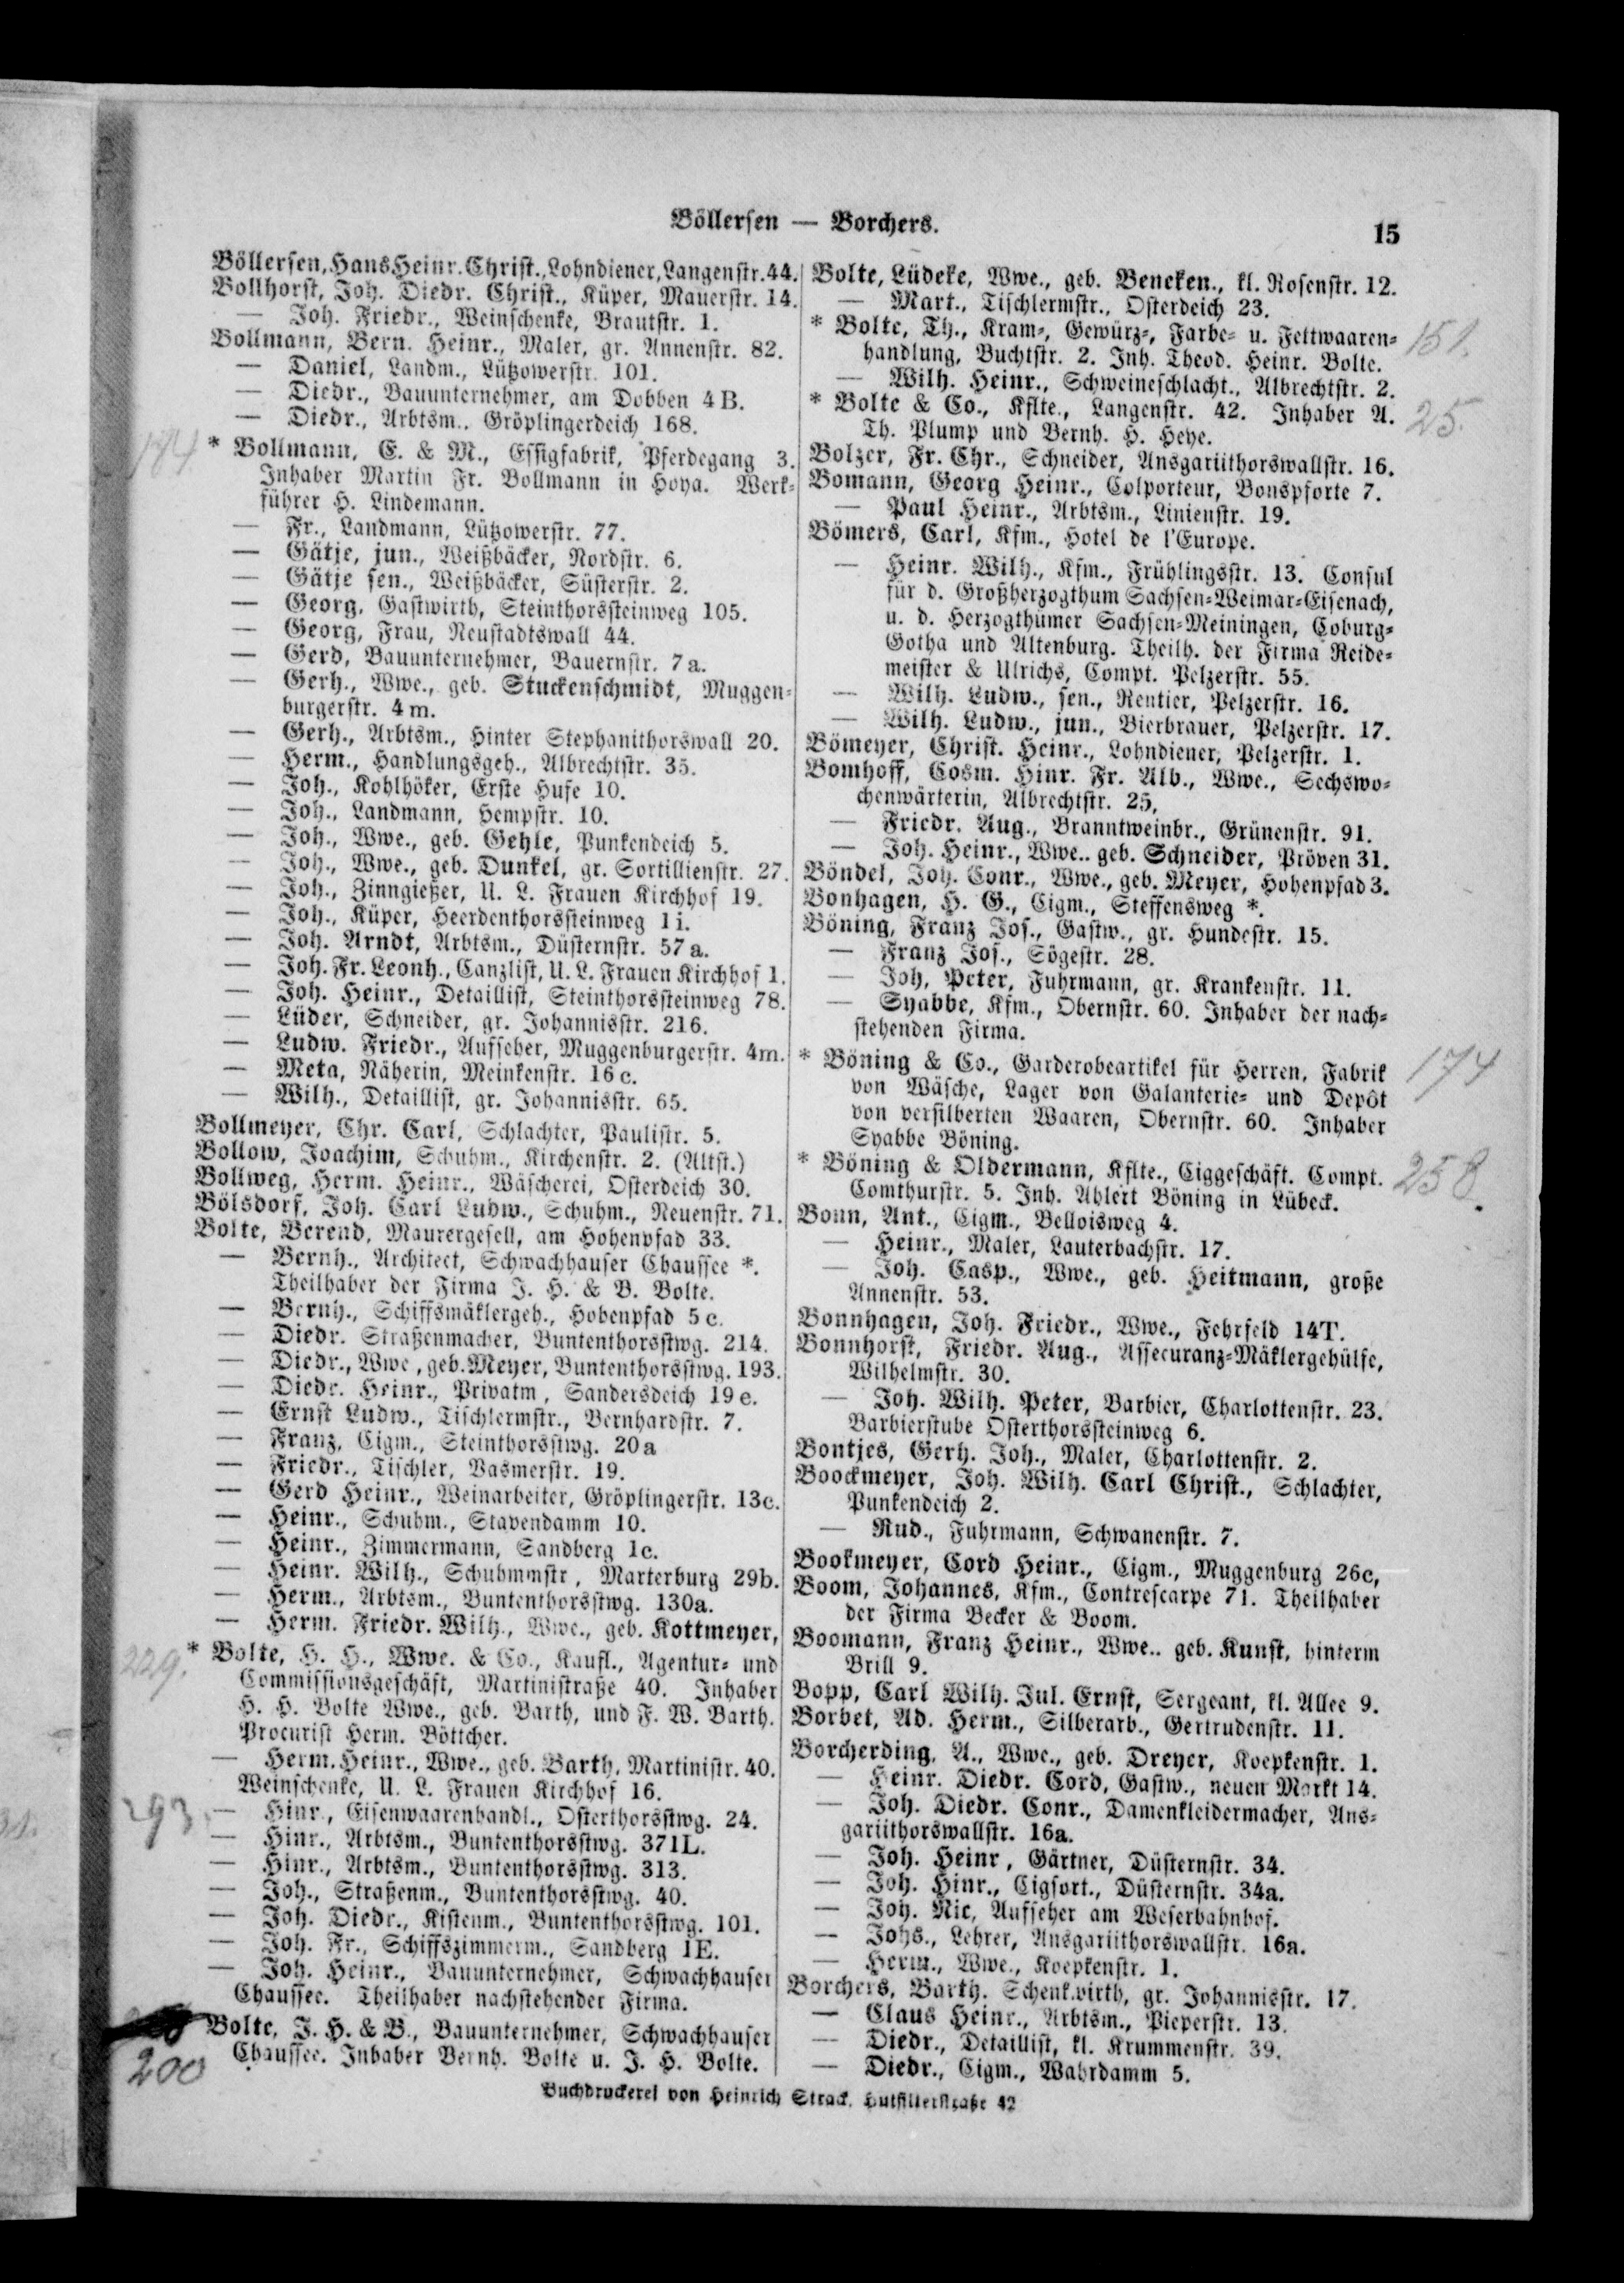 Böllersen — Borchers.
15
Böllersen, Hans Heinr. Christ., Lohndiener, Langenstr. 44.
Bollhorst, Joh. Diedr. Christ., Küper, Mauerstr. 14.
— Joh. Friedr., Weinschenke, Brautstr. 1.
Bollmann, Bern. Heinr., Maler, gr. Annenstr. 82.
— Daniel, Landm., Lützowerstr. 101.
— Diedr., Bauunternehmer, am Dobben 4B.
— Diedr., Arbtsm., Gröplingerdeich 168.
184
* Bollmann, E. & M., Essigfabrik, Pferdegang 3.
Inhaber Martin Fr. Bollmann in Hoya. Werk-
führer H. Lindemann.
— Fr., Landmann, Lützowerstr. 77.
— Gätje, jun., Weißbäcker, Nordstr. 6.
— Gätje sen., Weißbäcker, Süsterstr. 2.
— Georg, Gastwirth, Steinthorssteinweg 105.
— Georg, Frau, Neustadtswall 44.
— Gerd, Bauunternehmer, Bauernstr. 7a.
— Gerh., Wwe., geb. Stuckenschmidt, Muggen-
burgerstr. 4m.
— Gerh., Arbtsm., Hinter Stephanithorswall 20.
— Herm., Handlungsgeh., Albrechtstr. 35.
— Joh., Kohlhöker, Erste Hufe 10.
— Joh., Landmann, Hempstr. 10.
— Joh., Wwe., geb. Gehle, Punkendeich 5.
— Joh., Wwe., geb. Dunkel, gr. Sortillienstr. 27.
— Joh., Zinngießer, U. L. Frauen Kirchhof 19.
— Joh., Küper, Heerdenthorssteinweg 1i.
— Joh. Arndt, Arbtsm., Düsternstr. 57a.
— Joh. Fr. Leonh., Canzlist, U. L. Frauen Kirchhof 1.
— Joh. Heinr., Detaillist, Steinthorssteinweg 78.
— Lüder, Schneider, gr. Johannisstr. 216.
— Ludw. Friedr., Aufseher, Muggenburgerstr. 4m.
— Meta, Näherin, Meinkenstr. 16c.
— Wilh., Detaillist, gr. Johannisstr. 65.
Bollmeyer, Chr. Carl, Schlachter, Paulistr. 5.
Bollow, Joachim, Schuhm., Kirchenstr. 2. (Altst.)
Bollweg, Herm. Heinr., Wäscherei, Osterdeich 30.
Bölsdorf, Joh. Carl Ludw., Schuhm., Neuenstr. 71.
Bolte, Berend, Maurergesell, am Hohenpfad 33.
— Bernh., Architect, Schwachhauser Chaussee *.
Theilhaber der Firma J. H. & B. Bolte.
— Bernh., Schiffsmäklergeh., Hohenpfad 5c.
— Diedr. Straßenmacher, Buntenthorsstwg. 214.
— Diedr., Wwe, geb. Meyer, Buntenthorsstwg. 193.
— Diedr. Heinr., Privatm, Sandersdeich 19e.
— Ernst Ludw., Tischlermstr., Bernhardstr. 7.
— Franz, Cigm., Steinthorsstwg. 20a
— Friedr., Tischler, Vasmerstr. 19.
— Gerd Heinr., Weinarbeiter, Gröplingerstr. 13c.
— Heinr., Schuhm., Stavendamm 10.
— Heinr., Zimmermann, Sandberg 1c.
— Heinr. Wilh., Schuhmmstr, Marterburg 29b.
— Herm., Arbtsm., Buntenthorsstwg. 130a.
— Herm. Friedr. Wilh., Wwe., geb. Kottmeyer,
229.
* Bolte, H. H., Wwe. & Co., Kaufl., Agentur- und
Commissionsgeschäft, Martinistraße 40. Inhaber
H. H. Bolte Wwe., geb. Barth, und F. W. Barth.
Procurist Herm. Böttcher.
— Herm. Heinr., Wwe., geb. Barth, Martinistr. 40.
Weinschenke, U. L. Frauen Kirchhof 16.
293.
— Hinr., Eisenwaarenhandl., Osterthorsstwg. 24.
— Hinr., Arbtsm., Buntenthorsstwg. 371L.
— Hinr., Arbtsm., Buntenthorsstwg. 313.
— Joh., Straßenm., Buntenthorsstwg. 40.
— Joh. Diedr., Kistenm., Buntenthorsstwg. 101.
— Joh. Fr., Schiffszimmerm., Sandberg 1E.
— Joh. Heinr., Bauunternehmer, Schwachhauser
Chaussee. Theilhaber nachstehender Firma.
Bolte, J. H. & B., Bauunternehmer, Schwachhauser
Chaussee. Inhaber Bernh. Bolte u. J. H. Bolte.
200
Bolte, Lüdeke, Wwe., geb. Beneken., kl. Rosenstr. 12.
— Mart., Tischlermstr., Osterdeich 23.
* Bolte, Th., Kram-, Gewürz-, Farbe- u. Fettwaaren-
handlung, Buchtstr. 2. Inh. Theod. Heinr. Bolte.
151.
— Wilh. Heinr., Schweineschlacht., Albrechtstr. 2.
* Bolte & Co., Kflte., Langenstr. 42. Inhaber A.
Th. Plump und Bernh. H. Heye.
25.
Bolzer, Fr. Chr., Schneider, Ansgariithorswallstr. 16.
Bomann, Georg Heinr., Colporteur, Bonspforte 7.
— Paul Heinr., Arbtsm., Linienstr. 19.
Bömers, Carl, Kfm., Hotel de l'Europe.
— Heinr. Wilh., Kfm., Frühlingsstr. 13. Consul
für d. Großherzogthum Sachsen-Weimar-Eisenach,
u. d. Herzogthümer Sachsen-Meiningen, Coburg-
Gotha und Altenburg. Theilh. der Firma Reide-
meister & Ulrichs, Compt. Pelzerstr. 55.
— Wilh. Ludw., sen., Rentier, Pelzerstr. 16.
— Wilh. Ludw., jun., Bierbrauer, Pelzerstr. 17.
Bömeyer, Christ. Heinr., Lohndiener, Pelzerstr. 1.
Bomhoff, Cosm. Hinr. Fr. Alb., Wwe., Sechswo-
chenwärterin, Albrechtstr. 25,
— Friedr. Aug., Branntweinbr., Grünenstr. 91.
— Joh. Heinr., Wwe.. geb. Schneider, Pröven 31.
Böndel, Joh. Conr., Wwe., geb. Meyer, Hohenpfad 3.
Bonhagen, H. G., Cigm., Steffensweg *.
Böning, Franz Jos., Gastw., gr. Hundestr. 15.
— Franz Jos., Sögestr. 28.
— Joh, Peter, Fuhrmann, gr. Krankenstr. 11.
— Syabbe, Kfm., Obernstr. 60. Inhaber der nach-
stehenden Firma.
* Böning & Co., Garderobeartikel für Herren, Fabrik
von Wäsche, Lager von Galanterie- und Depôt
von versilberten Waaren, Obernstr. 60. Inhaber
Syabbe Böning.
174
* Böning & Oldermann, Kflte., Ciggeschäft. Compt.
Comthurstr. 5. Inh. Ahlert Böning in Lübeck.
258.
Bonn, Ant., Cigm., Belloisweg 4.
— Heinr., Maler, Lauterbachstr. 17.
— Joh. Casp., Wwe., geb. Heitmann, große
Annenstr. 53.
Bonnhagen, Joh. Friedr., Wwe., Fehrfeld 14T.
Bonnhorst, Friedr. Aug., Assecuranz-Mäklergehülfe,
Wilhelmstr. 30.
— Joh. Wilh. Peter, Barbier, Charlottenstr. 23.
Barbierstube Osterthorssteinweg 6.
Bontjes, Gerh. Joh., Maler, Charlottenstr. 2.
Boockmeyer, Joh. Wilh. Carl Christ., Schlachter,
Punkendeich 2.
— Rud., Fuhrmann, Schwanenstr. 7.
Bookmeyer, Cord Heinr., Cigm., Muggenburg 26c,
Boom, Johannes, Kfm., Contrescarpe 71. Theilhaber
der Firma Becker & Boom.
Boomann, Franz Heinr., Wwe.. geb. Kunst, hinterm
Brill 9.
Bopp, Carl Wilh. Jul. Ernst, Sergeant, kl. Allee 9.
Borbet, Ad. Herm., Silberarb., Gertrudenstr. 11.
Borcherding, A., Wwe., geb. Dreyer, Koepkenstr. 1.
— Heinr. Diedr. Cord, Gastw., neuen Markt 14.
— Joh. Diedr. Conr., Damenkleidermacher, Ans-
gariithorswallstr. 16a.
— Joh. Heinr, Gärtner, Düsternstr. 34.
— Joh. Hinr., Cigsort., Düsternstr. 34a.
— Joh. Nic, Aufseher am Weserbahnhof.
— Johs., Lehrer, Ansgariithorswallstr. 16a.
— Herm., Wwe., Koepkenstr. 1.
Borchers, Barth. Schenkwirth, gr. Johannisstr. 17.
— Claus Heinr., Arbtsm., Pieperstr. 13.
— Diedr., Detaillist, kl. Krummenstr. 39.
— Diedr., Cigm., Wahrdamm 5.
Buchdruckerei von Heinrich Strack, Hutfilterstraße 42